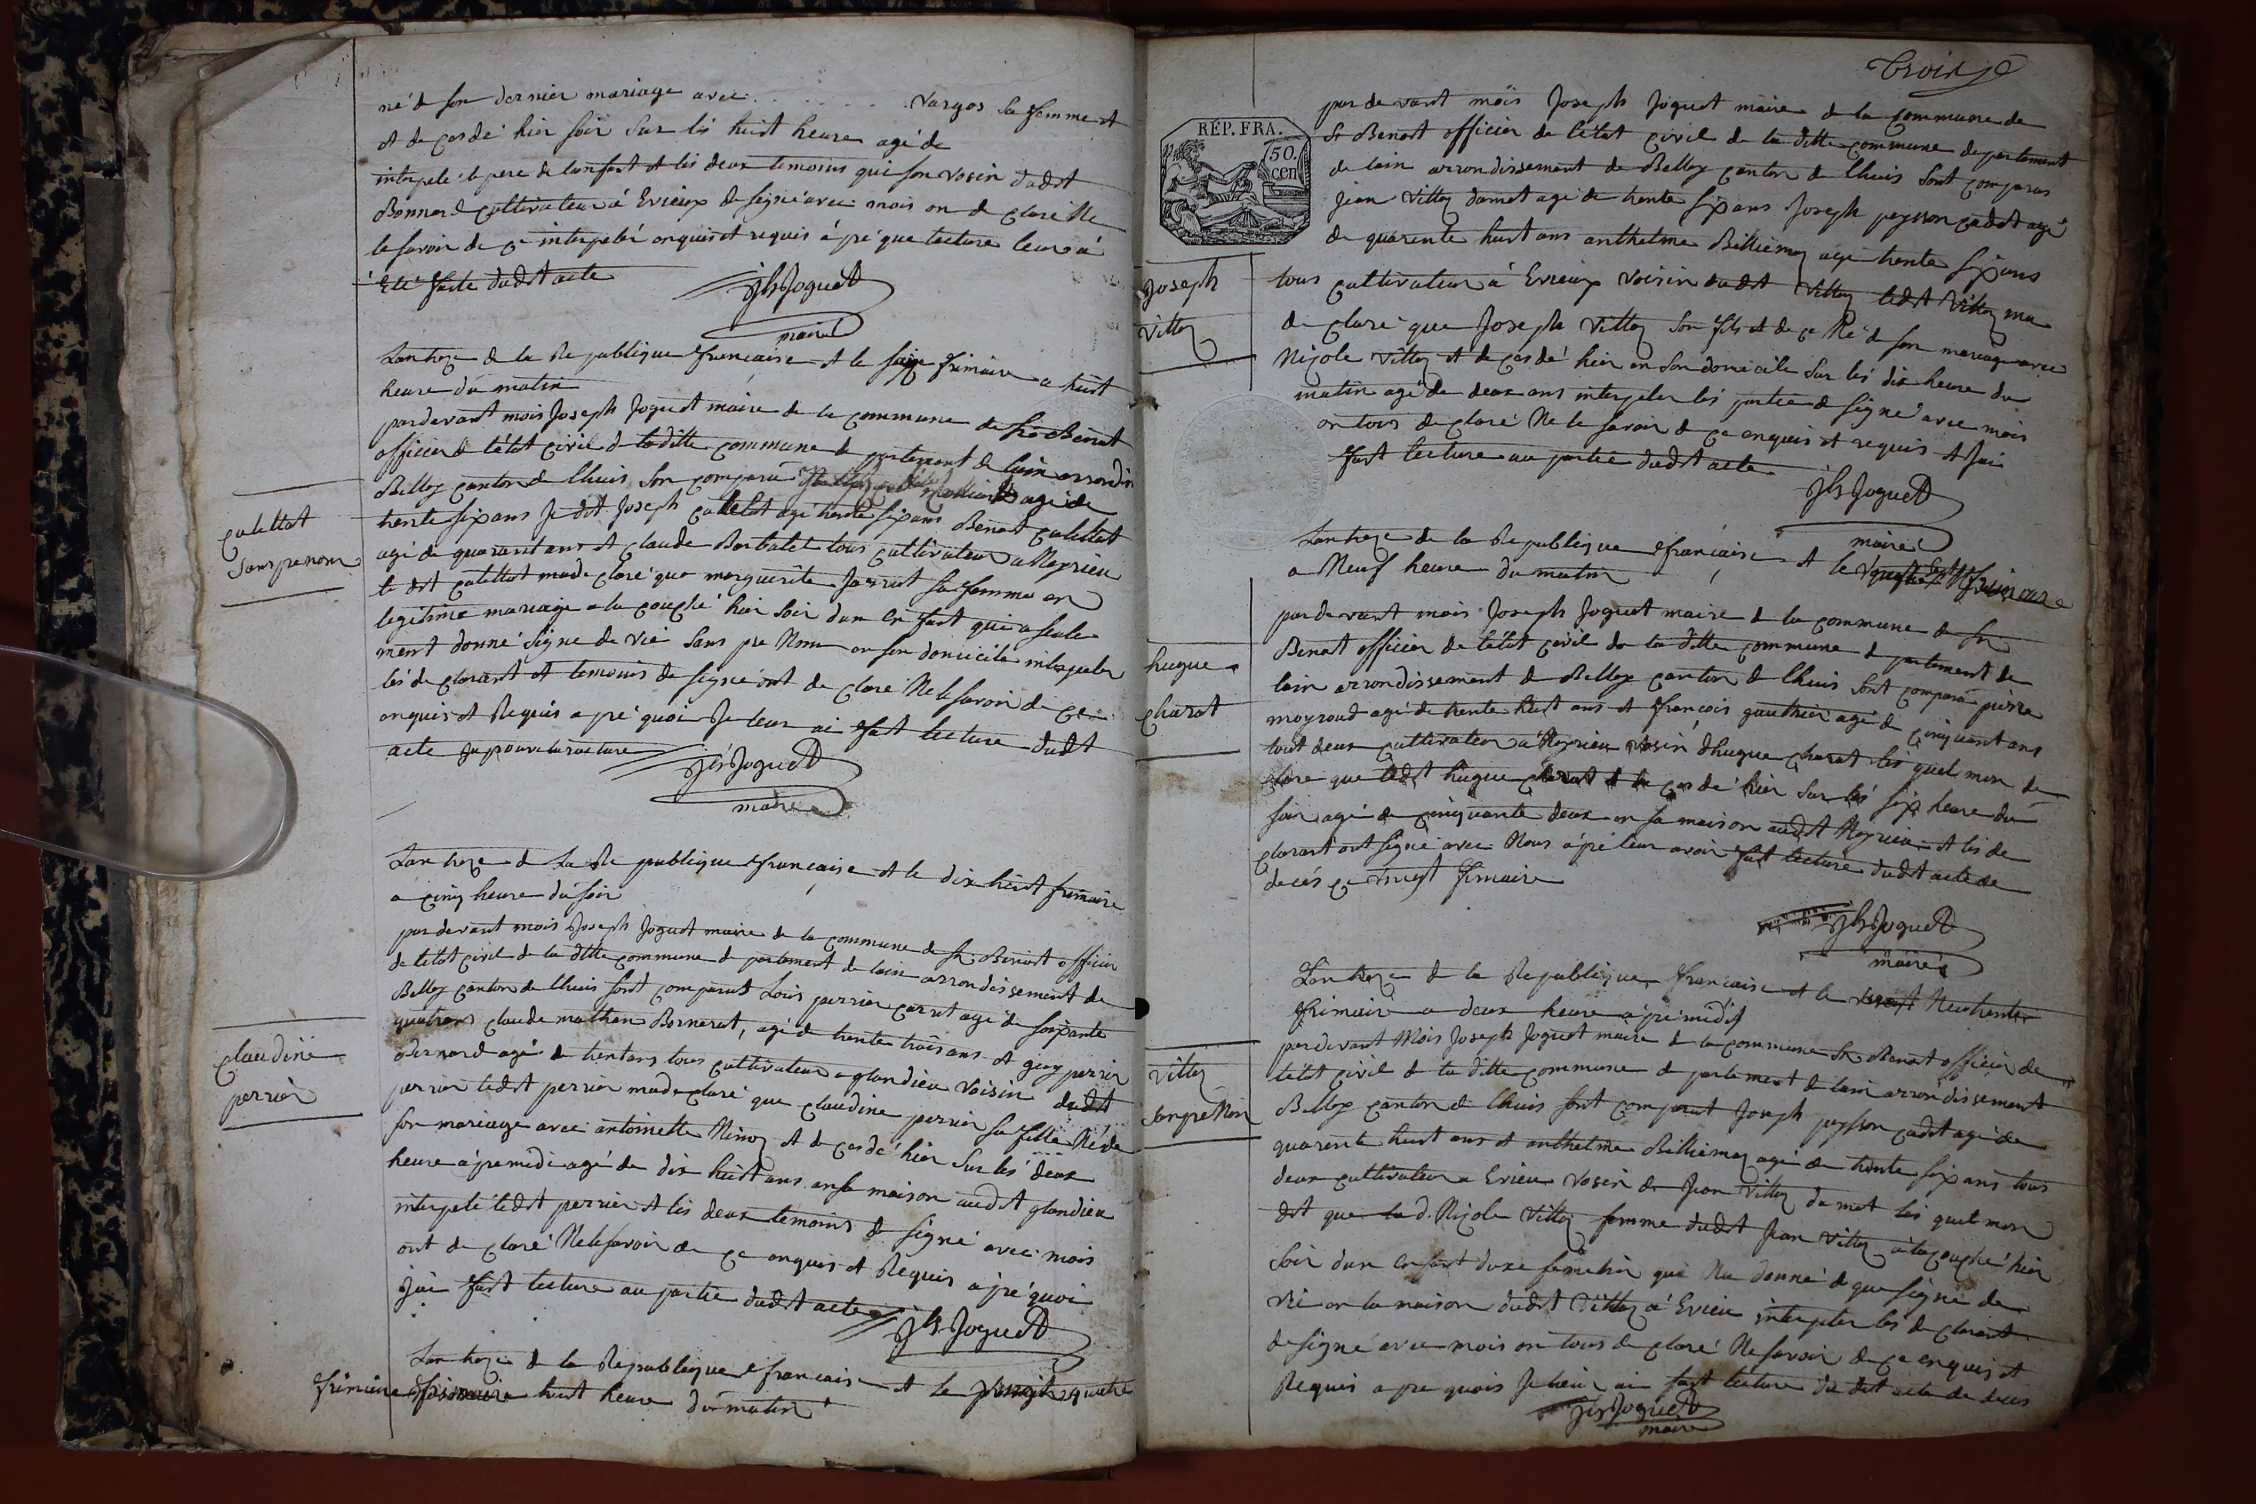 né de son dernier mariage avec . . . . . . . . . vargos sa femme et
et de cosdé hier soir sur lés huit heure agé de
interpelé le pere de lenfant et lés deux temoins qui son vosin dudit
Bonnard cultivateur á Evieux de signé avec mois on de claré Ne
le savoir de ce interpelé enquis et requis á pré que lecture leur á
Eté faite dudit acte
Jh Joguet
maire
Lan treze de la Republique francaise et le seize frimaire a huit
heure du matin
pardevant mois Joseph Joguet maire de la commune de St Benoit
officier de létat civil de la ditte commune de partement de lain arrondis
Belley canton de lhuis son comparu agé de
trente six ans Je dit Joseph callettat agé trente six ans Benoit calettat
agé de quarant ans et claude Barbalet tous cultivateur a Neyrieu
le dit calettat ma de claré que marguerite Jarrut sa femme en
legitime mariage a la couché hier soir dun En fant qui a seule
ment donné signe de vié sans pre Nom en son domicile interpeler
lés de clarant et temouis de signé ont de claré Ne le savoir de ce
enquis et Requis a pré quoi Je leur ai fait lecture dudt
acte
Jh Joguet
maire
calettat
sans prenom
Lan treze de La Re publique francaise et le dix huit frimaire
a cinq heure du soir
par devant mois Joseph Joguet maire de la commune de St Benoit officier
de létat civil de la ditte commune de partement de lain arrondissement de
Belley canton de lhuis sont comparut Louis perrier carret agé de soixante
quatrans claude mathan Bornarat, agé de trente trois ans et guy perrier
a Bernard agé de trentans tous cultivateur a glandieu voisin dudit
perrier ledit perrier ma de claré que claudine perrier sa fille Né de
son mariage avec antoinette Ninoz et de cosdé hier sur lés deux
heure á pre midi agé de dix huit ans en sa maison audit glandieu
interpelé ledit perrier et lés deux temoins de signé avec mois
ont de claré Ne le savoir de ce enquis et Requis a pré quoi
Jai fait lecture au partie dudit acte
Jh Joguet
claudine
perrier
Lan treze de la Republique francaise et le
frimaire huit heure du matin
troix
RÉP. FRA.
50.
cen
par de vant mois Joseph Joguet maire de la commune de
St Benoit officier de létat civil de la ditte commune de partement
de lain arrondissement de Belley canton de lhuis sont comparus
Jean vittoz damet agé de trente six ans Joseph peysson cadet agé
de quarente huit ans anthelme Billiemaz agé trente six ans
tous cultivateur á Evieux voisin dudit vittoz ledit vittoz ma
de claré que Joseph vittoz son fils et de ce Né de son mariage avec
Nicole vittoz et de cosdé hier en son domicile sur lés dix heure du
matin agé de deux ans interpeler lés partie de signé avec mois
on tous de claré Ne le savoir de ce enquis et requis et Jai
fait lecture au partie dudit acte
Jh Joguet
maire
Joseph
vittoz
Lan treze de la Republique francaise et le frimaire
a Neuf heure du matin
par de vant mois Joseph Joguet maire de la commune de St
Benoit officier de létat civil de la ditte commune de partement de
lain arrondissement de Belley canton de lhuis sont comparu pierre
moyroud agé de trente huit ans et francois gauthier agé de cinquant ans
tout deux cultivateur á Neyrieu vosin dhugue charat lés quel mon de
claré que ledit hugue charat et de cosdé hier sur lés six heure du
soir agé de cinquante deux en sa maison audit Neyrieu et lés de
clarant ont signé avec Nous á pré leur avoir fait lecture dudit acte de
decés ce frimaire
Jh Joguet
maire
hugue
charat
Lan treze de la Republique francaise et le
frimaire a deux heure á pré midi
par devant Mois Joseph Joguet maire de la commune St Benoit officier de
létat civil de la ditte commune de partement de lain arrondissement
Belley canton de lhuis sont comparut Joseph peysson cadet agé de
quarente huit ans et anthelme Billiemaz agé de trente six ans tous
deux cultivateur a Evieu vosin de Jean vittoz damet lés quel mon
dit que la d. Nicole vittoz femme dudit Jean vittoz á la couché hier
soir dun enfant duxe feminin qui Na donné de que signe de
vié en la maison dudit vittoz á Evieu interpeler lés de clarant
de signé avec mois on tous de claré Ne savoir de ce enquis et
Requis a pre quois Je leur ai fait lecture du dit acte de deces
Jh Joguet
maire
vittoz
sanpre Nom